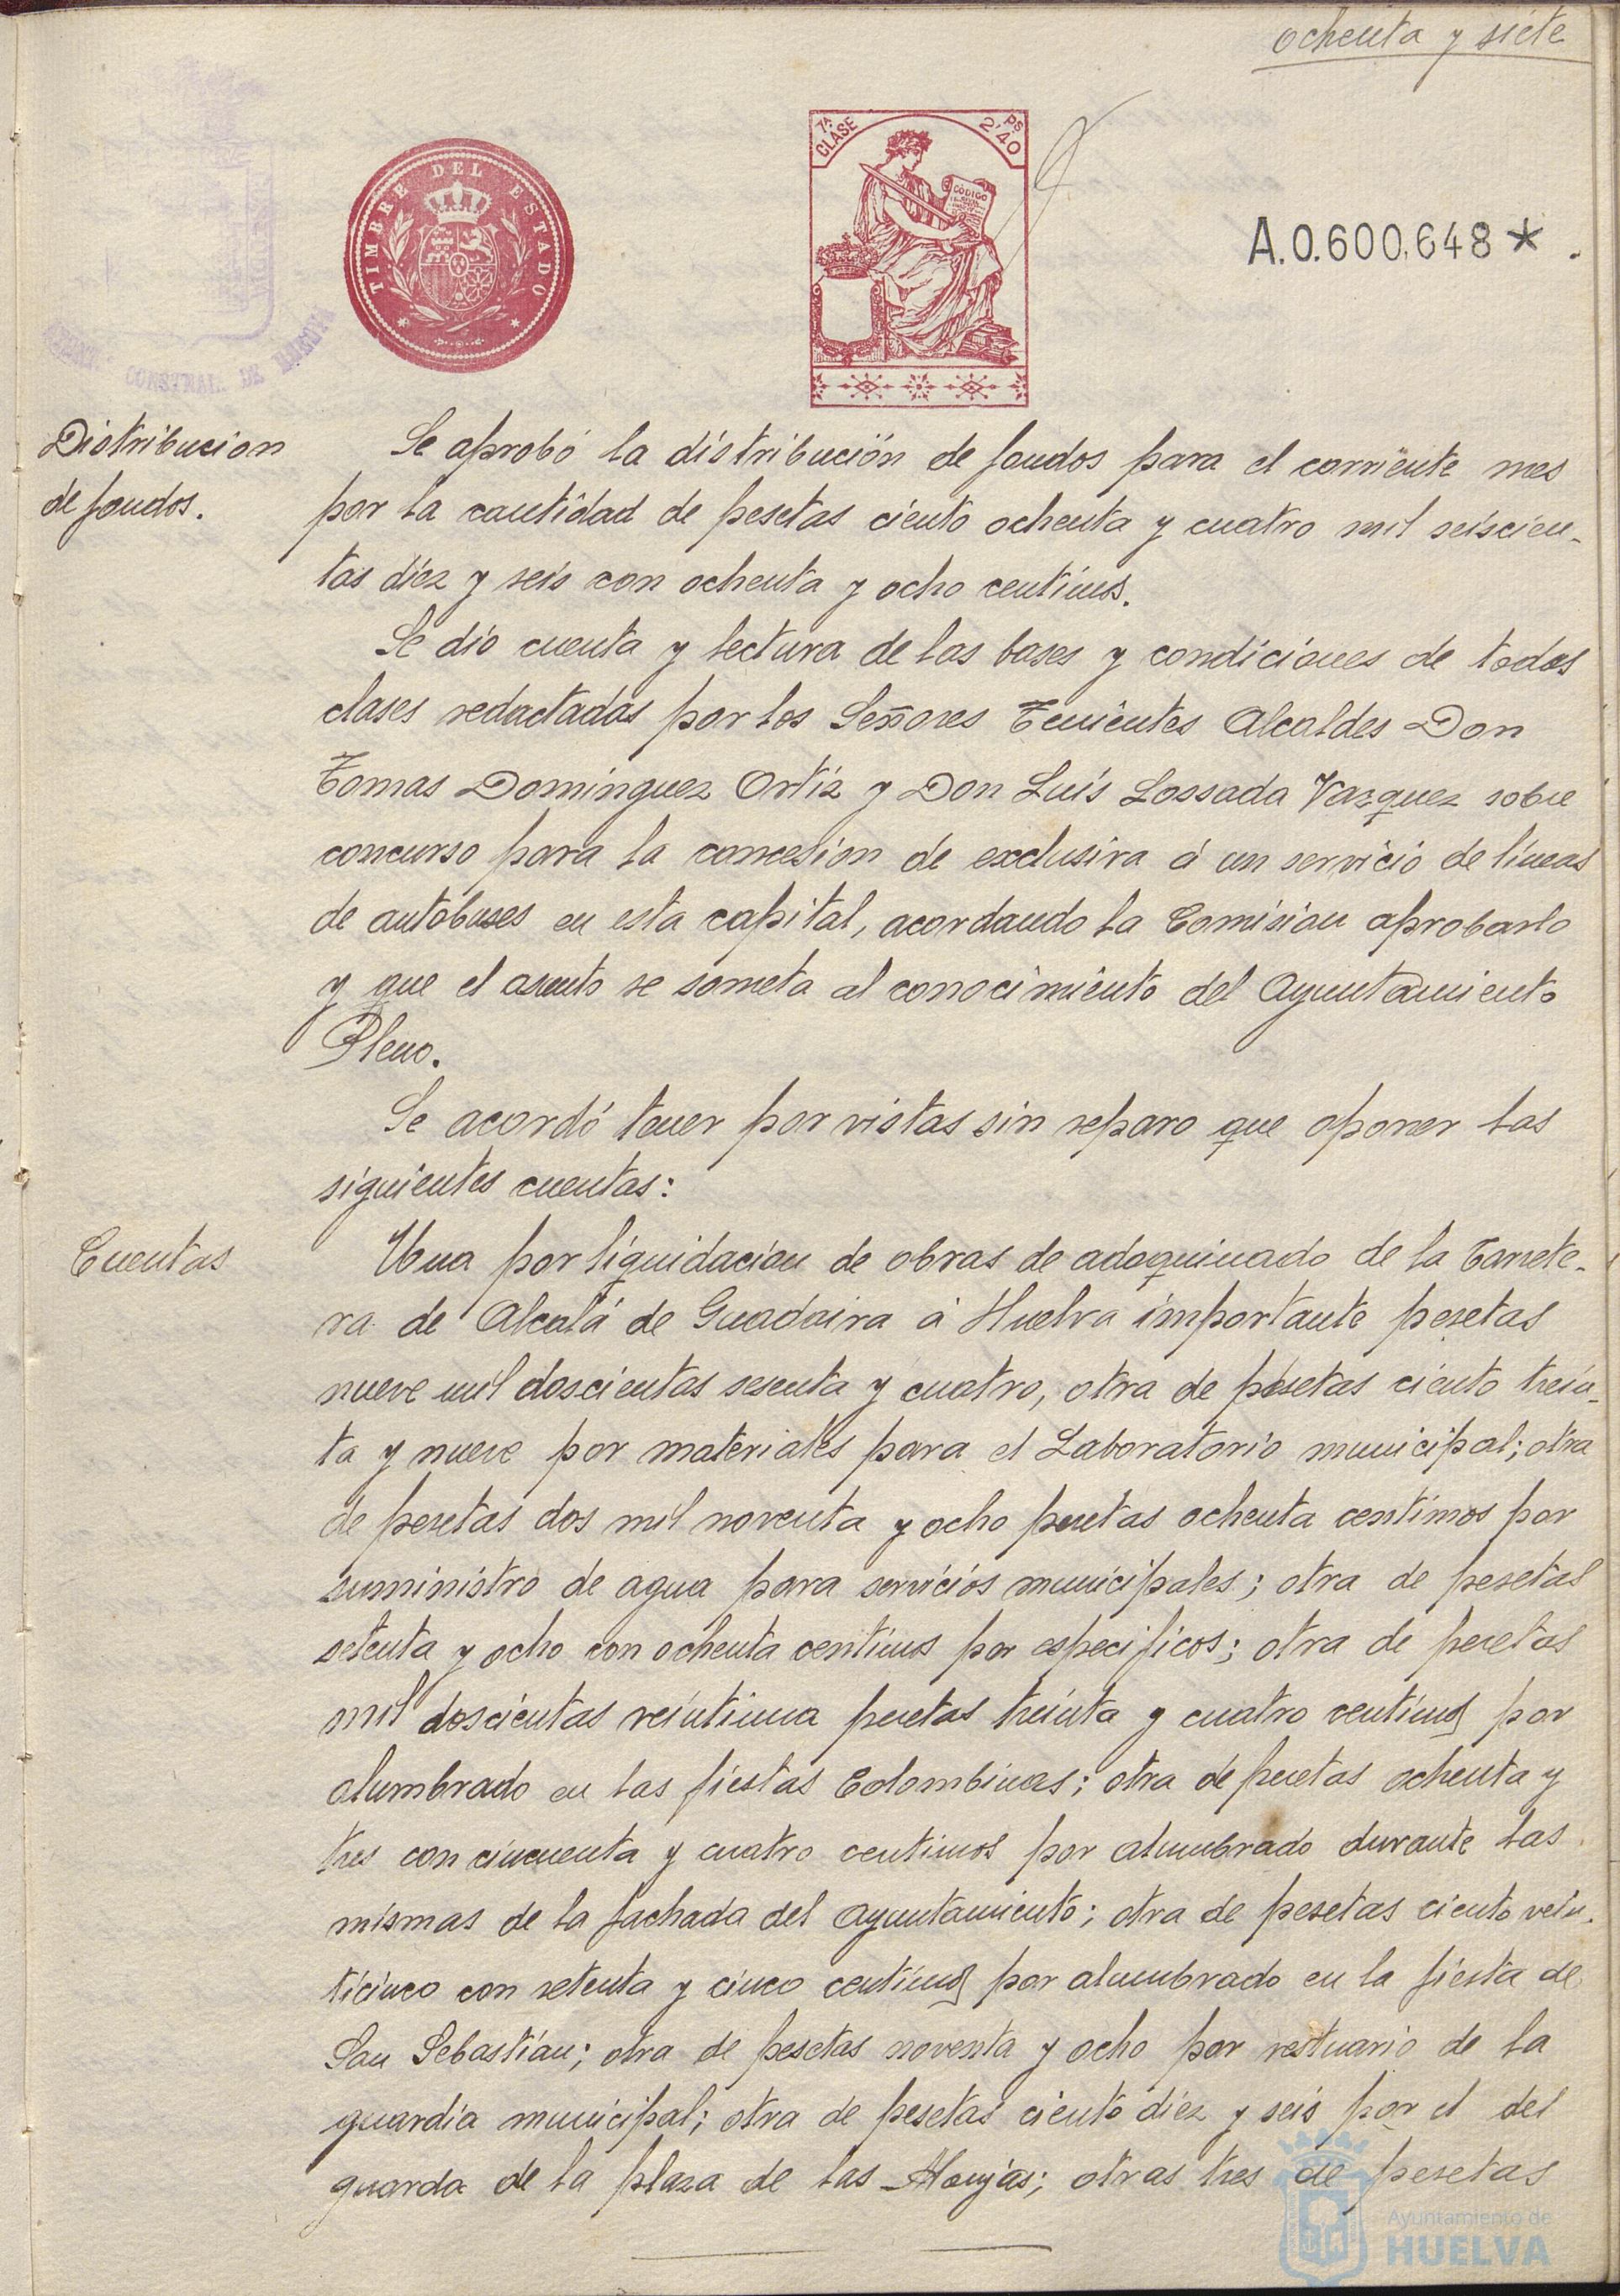 ochenta y siete
TIMBRE DEL ESTADO
7ª CLASE
PS 2'40
CÓDIGO
A.0.600.648*
CONSTNAL. DE HUELVA
Distribucion
de fondos.
Se aprobó la distribución de fondos para el corriente mes
por la cantidad de pesetas ciento ochenta y cuatro mil seiscien-
tas diez y seis con ochenta y ocho centimos.
Se dió cuenta y lectura de las bases y condiciones de todas
clases redactadas por los Señores Tenientes Alcaldes Don
Tomas Dominguez Ortiz y Don Luis Lossada Vazquez sobre
concurso para la concesion de exclusiva á un servicio de líneas
de autobuses en esta capital, acordando la Comision aprobarlo
y que el asunto se someta al conocimiento del Ayuntamiento
Pleno.
Se acordó tener por vistas sin reparo que oponer las
siguientes cuentas:
Cuentas
Una por liquidacion de obras de adoquinado de la Carrete-
ra de Alcalá de Guadaira á Huelva importante pesetas
nueve mil doscientas sesenta y cuatro, otra de pesetas ciento trein-
ta y nueve por materiales para el Laboratorio municipal; otra
de pesetas dos mil noventa y ocho pesetas ochenta centimos por
suministro de agua para servicios municipales; otra de pesetas
setenta y ocho con ochenta centimos por especificos; otra de pesetas
mil doscientas veintiuna pesetas treinta y cuatro centimos por
alumbrado en las fiestas Colombinas; otra de pesetas ochenta y
tres con cincuenta y cuatro centimos por alumbrado durante las
mismas de la fachada del Ayuntamiento; otra de pesetas ciento vein-
ticinco con setenta y cinco centimos por alumbrado en la fiesta de
San Sebastián; otra de pesetas noventa y ocho por vestuario de la
guardia municipal; otra de pesetas ciento diez y seis por el del
guarda de la plaza de las Monjas; otras tres de pesetas
Ayuntamiento de
HUELVA